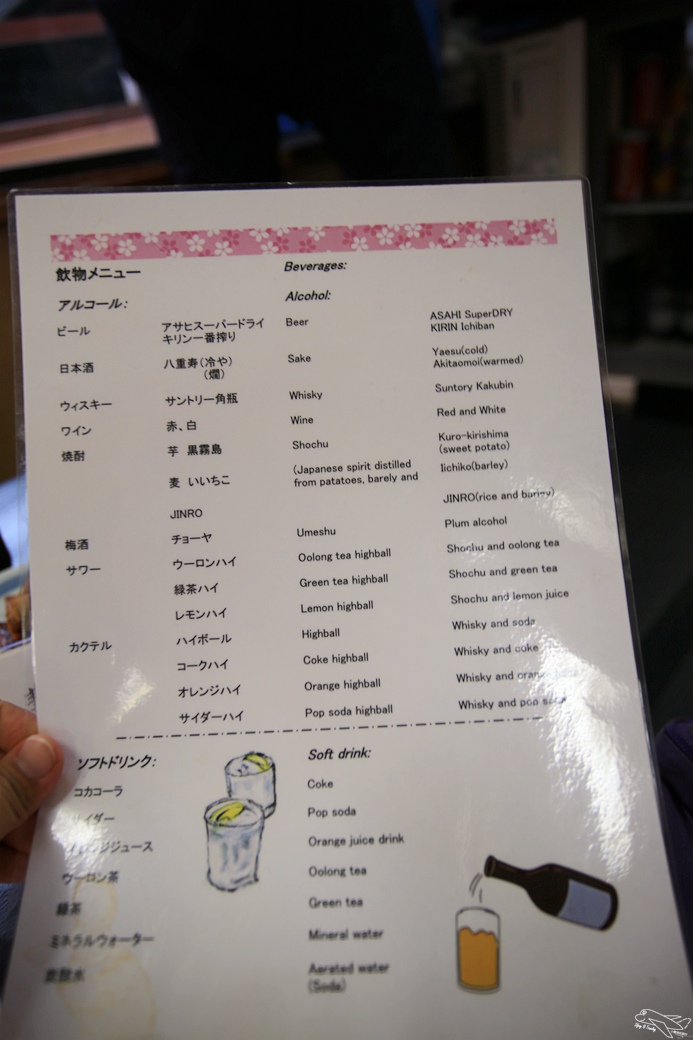 飲物メニュー Beverages:
アルコール: Alcohol:
ビール アサヒスーパードライ Beer ASAHI SuperDRY
キリン一番搾り KIRIN Ichiban
日本酒 八重寿(冷や) Sake Yaesu(cold)
(燗) Akitaomoi(warmed)
ウィスキー サントリー角瓶 Whisky Suntory Kakubin
ワイン 赤、白 Wine Red and White
焼酎 芋 黒霧島 Shochu Kuro-kirishima
(sweet potato)
麦 いいちこ (Japanese spirit distilled Iichiko(barley)
from patatoes, barely and
JINRO JINRO(rice and barley)
梅酒 チョーヤ Umeshu Plum alcohol
サワー ウーロンハイ Oolong tea highball Shochu and oolong tea
緑茶ハイ Green tea highball Shochu and green tea
レモンハイ Lemon highball Shochu and lemon juice
カクテル ハイボール Highball Whisky and soda
コークハイ Coke highball Whisky and coke
オレンジハイ Orange highball Whisky and orange
サイダーハイ Pop soda highball Whisky and pop soda
ソフトドリンク: Soft drink:
コカコーラ Coke
サイダー Pop soda
オレンジジュース Orange juice drink
ウーロン茶 Oolong tea
緑茶 Green tea
ミネラルウォーター Mineral water
炭酸水 Aerated water
(Soda)